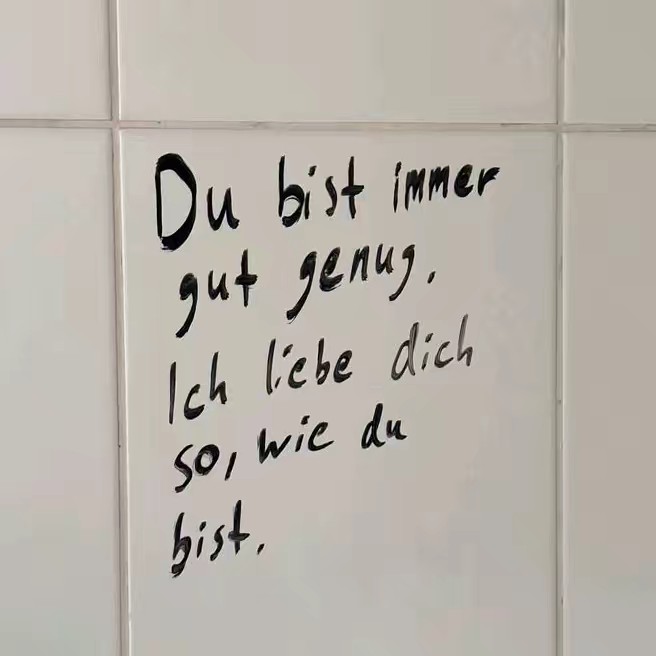 Du bist immer
gut genug.
Ich liebe dich
so, wie du
bist.